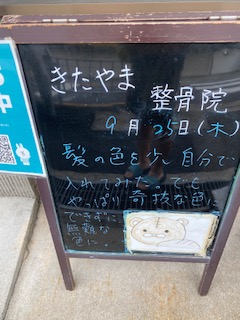 きたやま
整骨院
9月25日(木)
髪の色を少し自分で
入れてみた。でも
やっぱり奇抜な色
できずに
無難な
色に